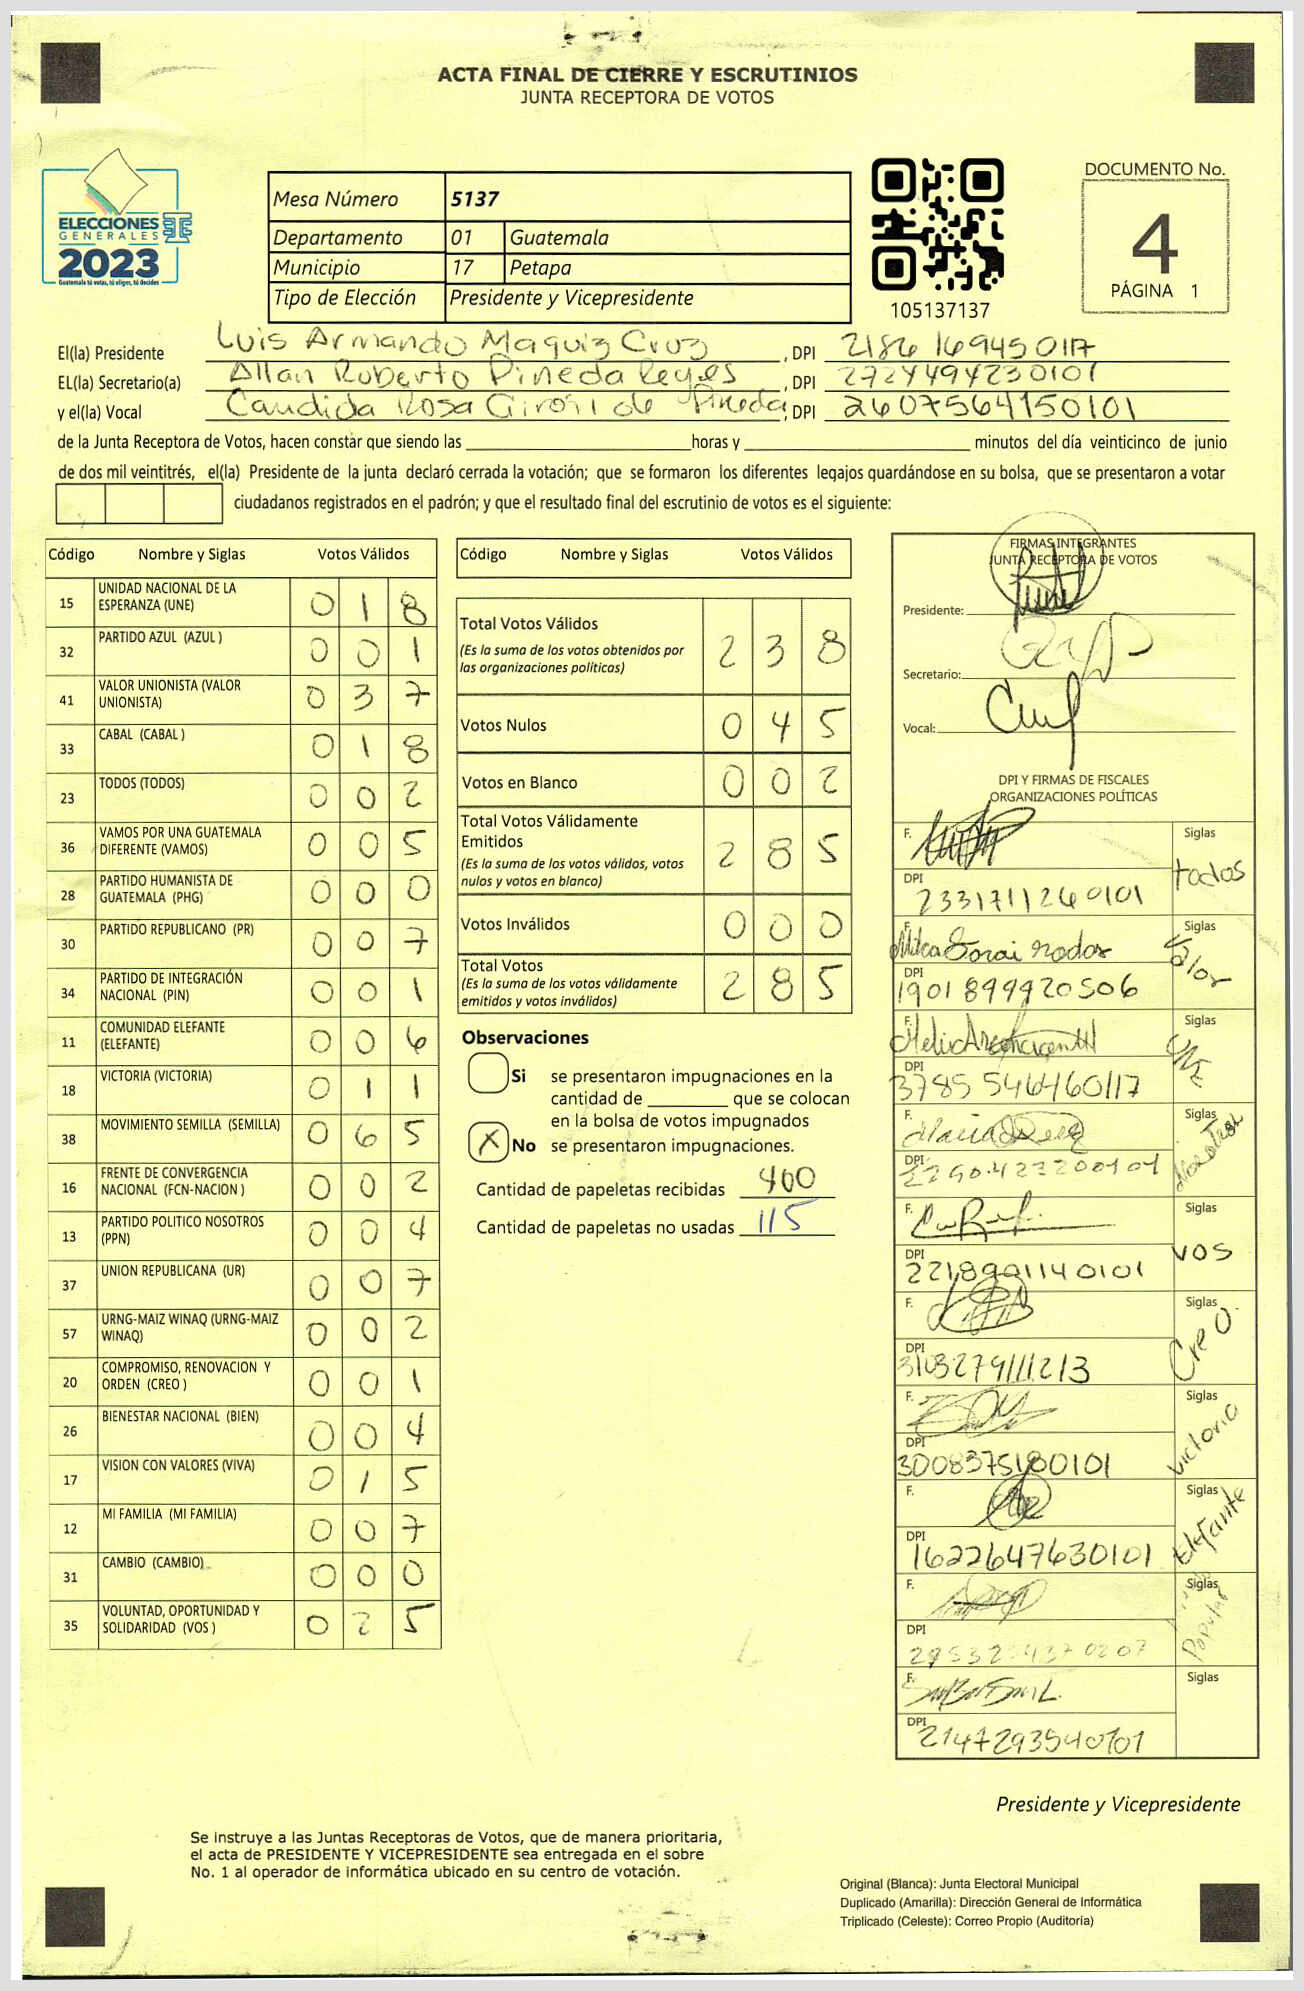 ACTA FINAL DE CIERRE Y ESCRUTINIOS
JUNTA RECEPTORA DE VOTOS
ELECCIONES
GENERALES
2023
Guatemala tú votas, tú eliges, tú decides
Mesa Número 5137
Departamento 01 Guatemala
Municipio 17 Petapa
Tipo de Elección Presidente y Vicepresidente
105137137
DOCUMENTO No.
4
PÁGINA 1
El(la) Presidente Luis Armando Maquiz Cruz , DPI 2186 16945 0117
EL(la) Secretario(a) Allan Roberto Pineda Reyes , DPI 2724494230101
y el(la) Vocal Candida Rosa Girón de Pineda , DPI 2607564150101
de la Junta Receptora de Votos, hacen constar que siendo las horas y minutos del día veinticinco de junio
de dos mil veintitrés, el(la) Presidente de la junta declaró cerrada la votación; que se formaron los diferentes legajos guardándose en su bolsa, que se presentaron a votar
ciudadanos registrados en el padrón; y que el resultado final del escrutinio de votos es el siguiente:
Código Nombre y Siglas Votos Válidos
15 UNIDAD NACIONAL DE LA ESPERANZA (UNE) 0 1 8
32 PARTIDO AZUL (AZUL ) 0 0 1
41 VALOR UNIONISTA (VALOR UNIONISTA) 0 3 7
33 CABAL (CABAL ) 0 1 8
23 TODOS (TODOS) 0 0 2
36 VAMOS POR UNA GUATEMALA DIFERENTE (VAMOS) 0 0 5
28 PARTIDO HUMANISTA DE GUATEMALA (PHG) 0 0 0
30 PARTIDO REPUBLICANO (PR) 0 0 7
34 PARTIDO DE INTEGRACIÓN NACIONAL (PIN) 0 0 1
11 COMUNIDAD ELEFANTE (ELEFANTE) 0 0 6
18 VICTORIA (VICTORIA) 0 1 1
38 MOVIMIENTO SEMILLA (SEMILLA) 0 6 5
16 FRENTE DE CONVERGENCIA NACIONAL (FCN-NACION ) 0 0 2
13 PARTIDO POLITICO NOSOTROS (PPN) 0 0 4
37 UNION REPUBLICANA (UR) 0 0 7
57 URNG-MAIZ WINAQ (URNG-MAIZ WINAQ) 0 0 2
20 COMPROMISO, RENOVACION Y ORDEN (CREO ) 0 0 1
26 BIENESTAR NACIONAL (BIEN) 0 0 4
17 VISION CON VALORES (VIVA) 0 1 5
12 MI FAMILIA (MI FAMILIA) 0 0 7
31 CAMBIO (CAMBIO) 0 0 0
35 VOLUNTAD, OPORTUNIDAD Y SOLIDARIDAD (VOS ) 0 2 5
Código Nombre y Siglas Votos Válidos
Total Votos Válidos 2 3 8
(Es la suma de los votos obtenidos por
las organizaciones políticas)
Votos Nulos 0 4 5
Votos en Blanco 0 0 2
Total Votos Válidamente
Emitidos 2 8 5
(Es la suma de los votos válidos, votos
nulos y votos en blanco)
Votos Inválidos 0 0 0
Total Votos 2 8 5
(Es la suma de los votos válidamente
emitidos y votos inválidos)
Observaciones
Si se presentaron impugnaciones en la
cantidad de que se colocan
en la bolsa de votos impugnados
X No se presentaron impugnaciones.
Cantidad de papeletas recibidas 400
Cantidad de papeletas no usadas 115
FIRMAS INTEGRANTES
JUNTA RECEPTORA DE VOTOS
Presidente:
Secretario:
Vocal:
DPI Y FIRMAS DE FISCALES
ORGANIZACIONES POLÍTICAS
F. Siglas todos
DPI 2331711260101
F. Siglas Valor
DPI 1901899920506
F. Siglas UNE
DPI 3785 546460117
F. Siglas
DPI
F. Siglas VOS
DPI 2218901140101
F. Siglas CreO
DPI
F. Siglas Victoria
DPI 3008375180101
F. Siglas Elefante
DPI 1622647630101
F. Siglas Popular
DPI
F. Siglas
DPI 2147293540101
Presidente y Vicepresidente
Se instruye a las Juntas Receptoras de Votos, que de manera prioritaria,
el acta de PRESIDENTE Y VICEPRESIDENTE sea entregada en el sobre
No. 1 al operador de informática ubicado en su centro de votación.
Original (Blanca): Junta Electoral Municipal
Duplicado (Amarilla): Dirección General de Informática
Triplicado (Celeste): Correo Propio (Auditoría)